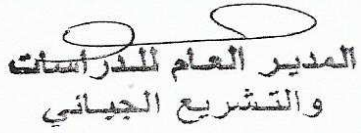 المدير العام للدراسات
والتشريع الجبائي